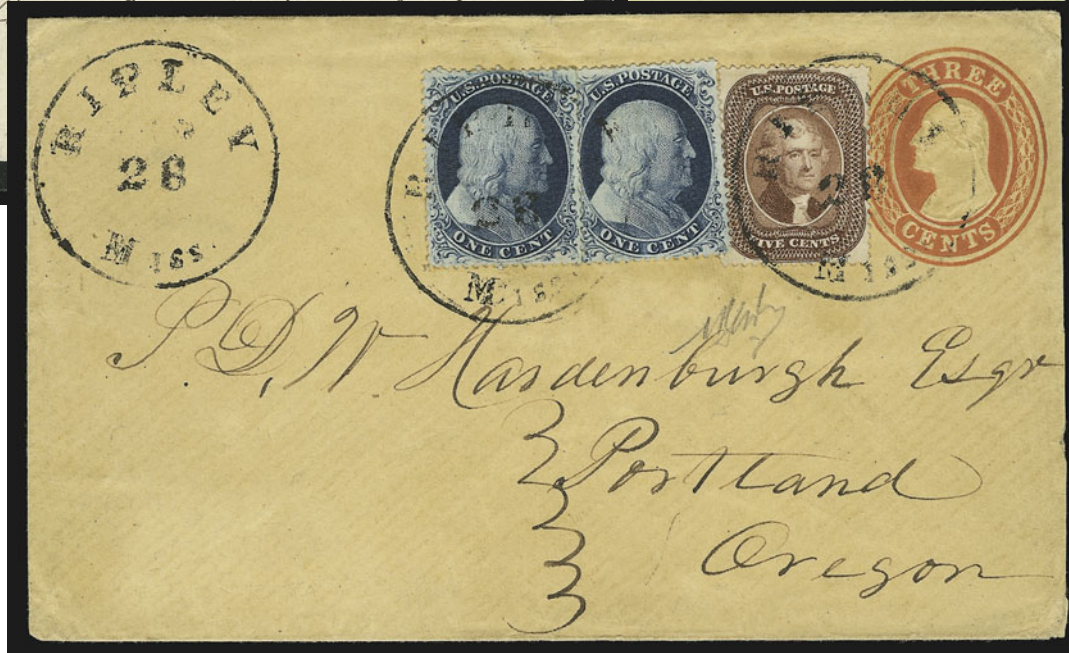 RIPLEY
28
Miss.
U.S. POSTAGE
ONE CENT
U.S. POSTAGE
ONE CENT
28
Miss
U.S. POSTAGE
FIVE CENTS
28
Miss
THREE
CENTS
P. D. W. Hardenburgh Esqr
Portland
Oregon